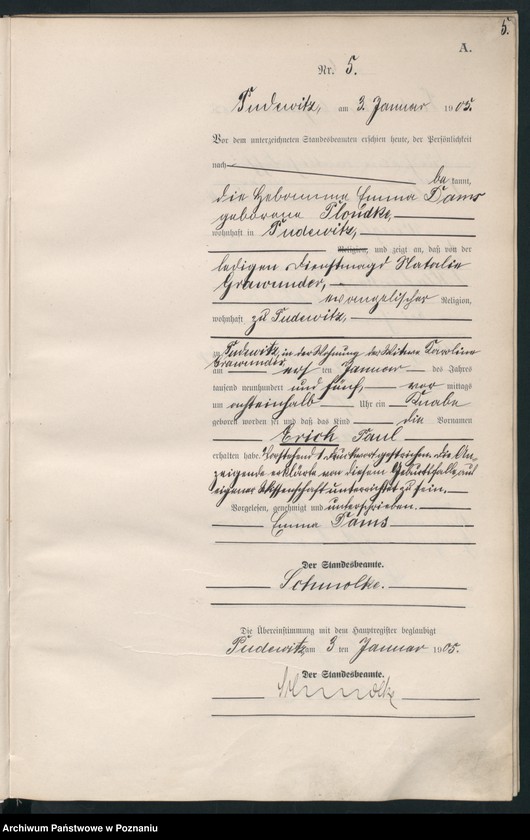 5.
A.
Nr. 5.
Pudewitz, am 3. Januar 1905.
Vor dem unterzeichneten Standesbeamten erschien heute, der Persönlichkeit
nach
be kannt,
die Hebamme Emma Dams
geborene Plondke,
wohnhaft in Pudewitz,
Religion, und zeigt an, daß von der
ledigen Dienstmagd Natalie
Grawunder,
evangelischer Religion,
wohnhaft zu Pudewitz,
in Pudewitz, in der Wohnung der Witwe Karoline
Grawunder,
am ersten Januar des Jahres
tausend neunhundert und fünf, vor mittags
um achteinhalb Uhr ein Knabe
geboren worden sei und daß das Kind die Vornamen
Erich Paul
erhalten habe. Vorstehend 1 Druckwort gestrichen. Die An-
zeigende erklärte von diesem Geburtsfalle aus
eigener Wissenschaft unterrichtet zu sein.
Vorgelesen, genehmigt und unterschrieben.
Emma Dams
Der Standesbeamte.
Schmolke.
Die Übereinstimmung mit dem Hauptregister beglaubigt
Pudewitz, am 3 ten Januar 1905.
Der Standesbeamte.
Schmolke
Archiwum Państwowe w Poznaniu